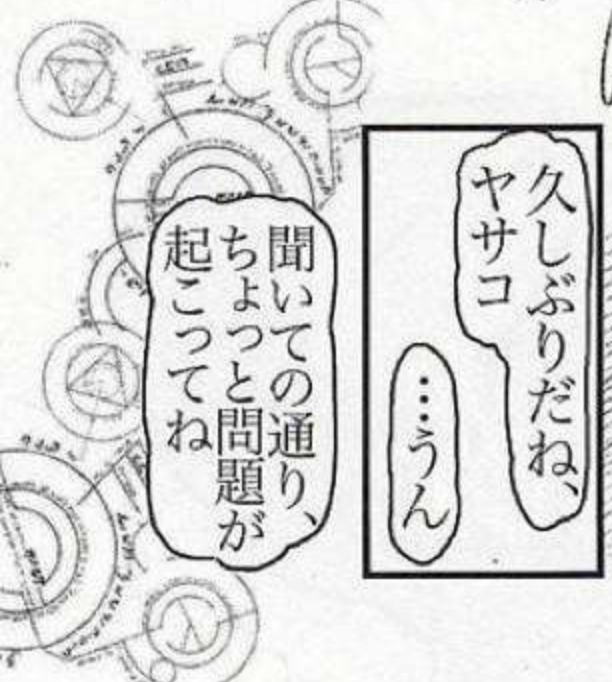 久しぶりだね、
ヤサコ
…うん
聞いての通り、
ちょっと問題が
起こってね